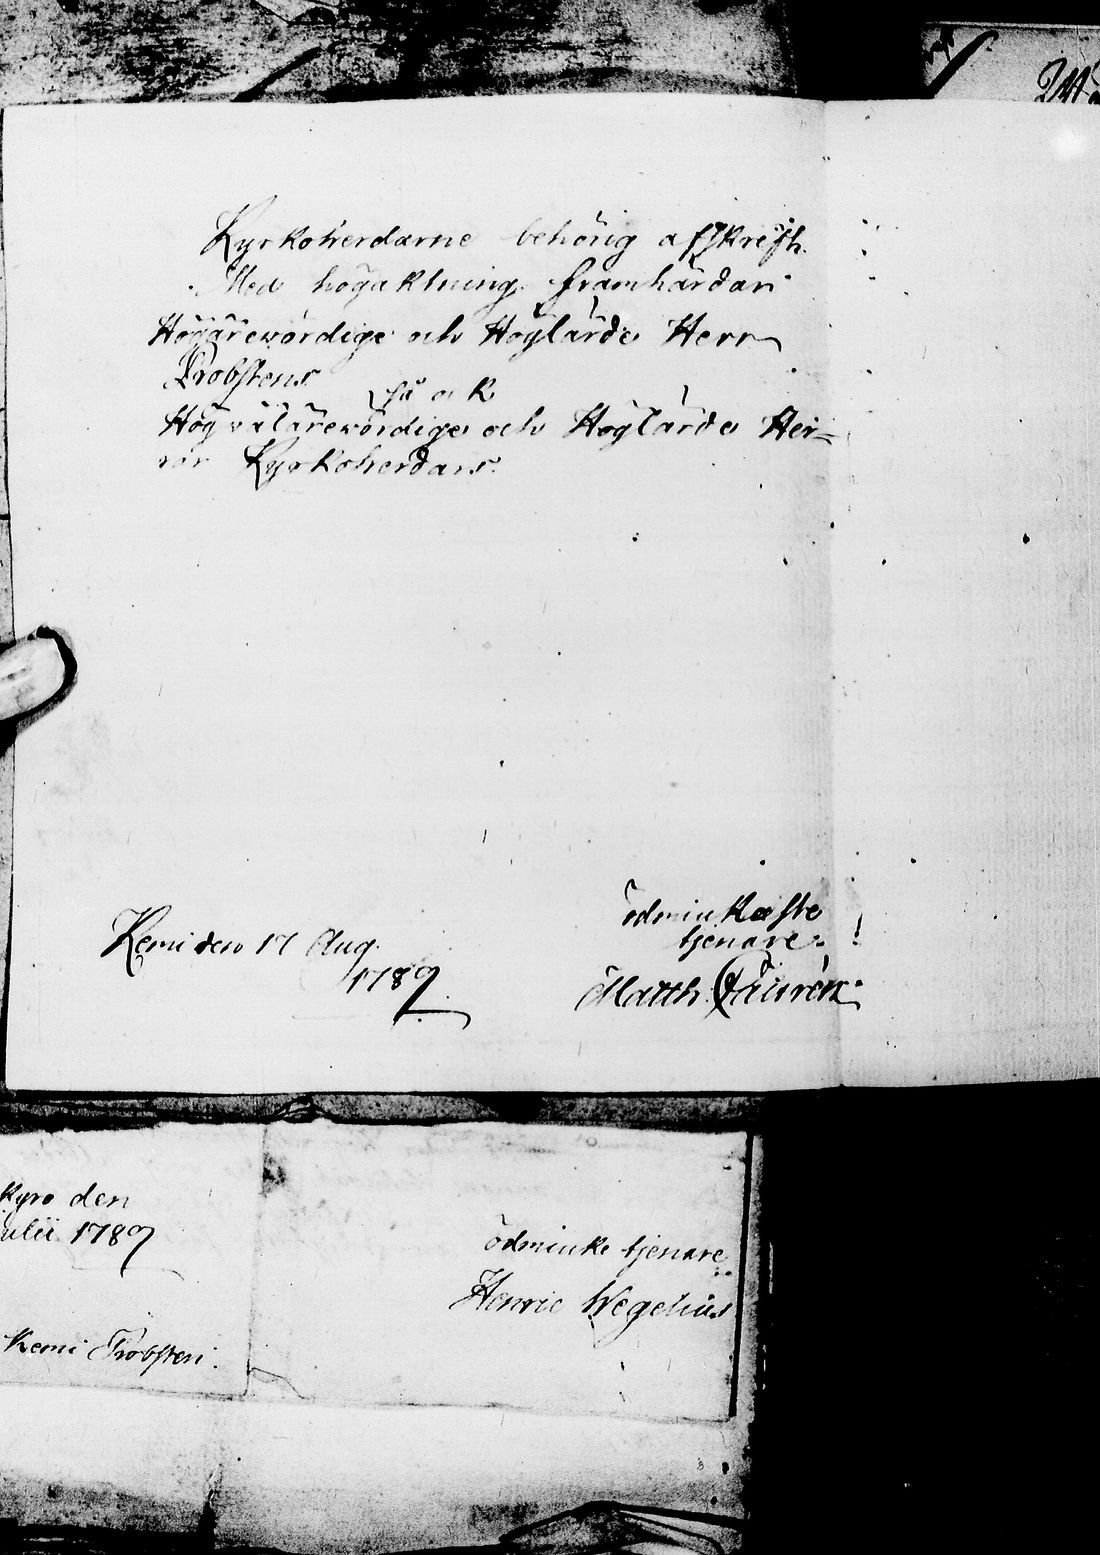 Kyrkoherdarne behörig afskrift.
Med högaktning framhärdar
Högärewördige och Höglärde Herr
Probstens
så ock
Högwälärewördige och Höglärde Her=
rar Kyrkoherdars
ödmiukaste
tjenare
Kemi den 17 Aug.
1789
Matth. Laurén
kyro den
ulii 1789
ödmiuke tjenare
Henric Wegelius
Kemi Probsten.